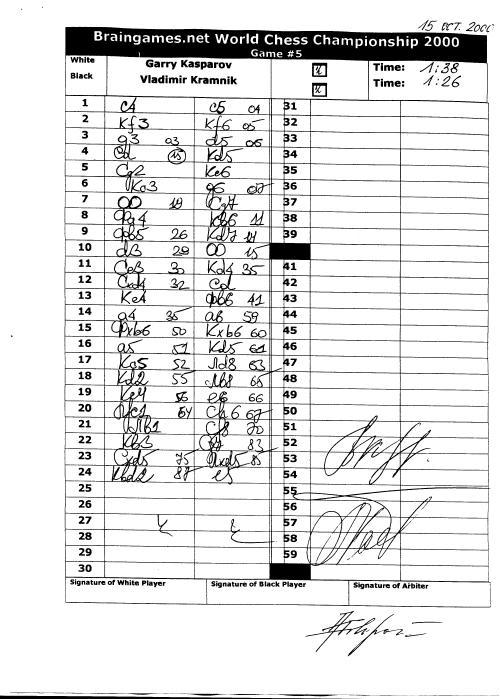 15 OCT. 2000
Braingames.net World Chess Championship 2000
Game #5
White Garry Kasparov ½ Time: 1:38
Black Vladimir Kramnik ½ Time: 1:26
1 c4 c5 04 31
2 Kf3 Kf6 05 32
3 g3 03 d5 06 33
4 cd 15 Kd5 34
5 Cg2 Kc6 35
6 Kc3 g6 07 36
7 00 19 Cg7 37
8 Фa4 Kb6 11 38
9 Фb5 26 Kd7 14 39
10 d3 29 00 15
11 Ce3 30 Kd4 35 41
12 Cxd4 32 cd 42
13 Ke4 Фb6 41 43
14 a4 35 a6 59 44
15 Фxb6 50 Kxb6 60 45
16 a5 51 Kd5 61 46
17 Kc5 52 Лd8 63 47
18 Kd2 55 Лb8 65 48
19 Kc4 56 e6 66 49
20 Лfc1 64 Ch6 67 50
21 Лb1 Cf8 70 51
22 Kb3 Cg7 83 52
23 Cxd5 75 Лxd5 85 53
24 Kbd2 87 e5 54
25 55
26 56
27 ½ ½ 57
28 58
29 59
30
Signature of White Player Signature of Black Player Signature of Arbiter